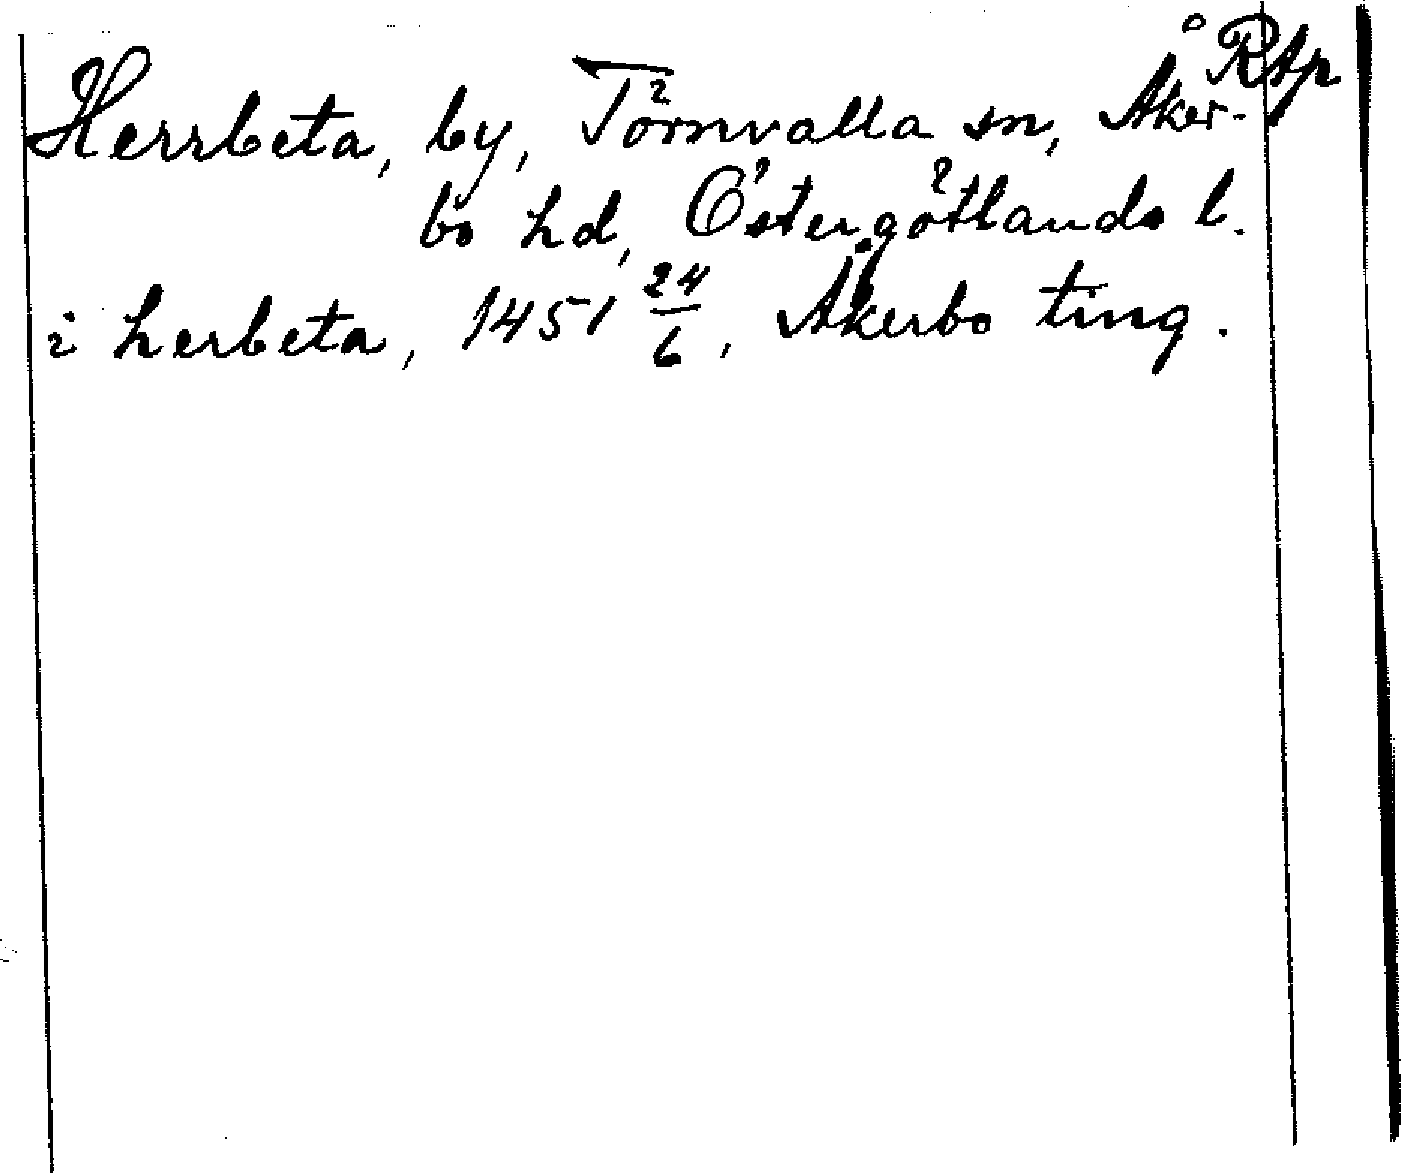 RAp
Herrbeta, by, Törnvalla sn, Åker-
bo hd, Östergötlands l.
i herbeta, 1451 24/6, Åkerbo ting.